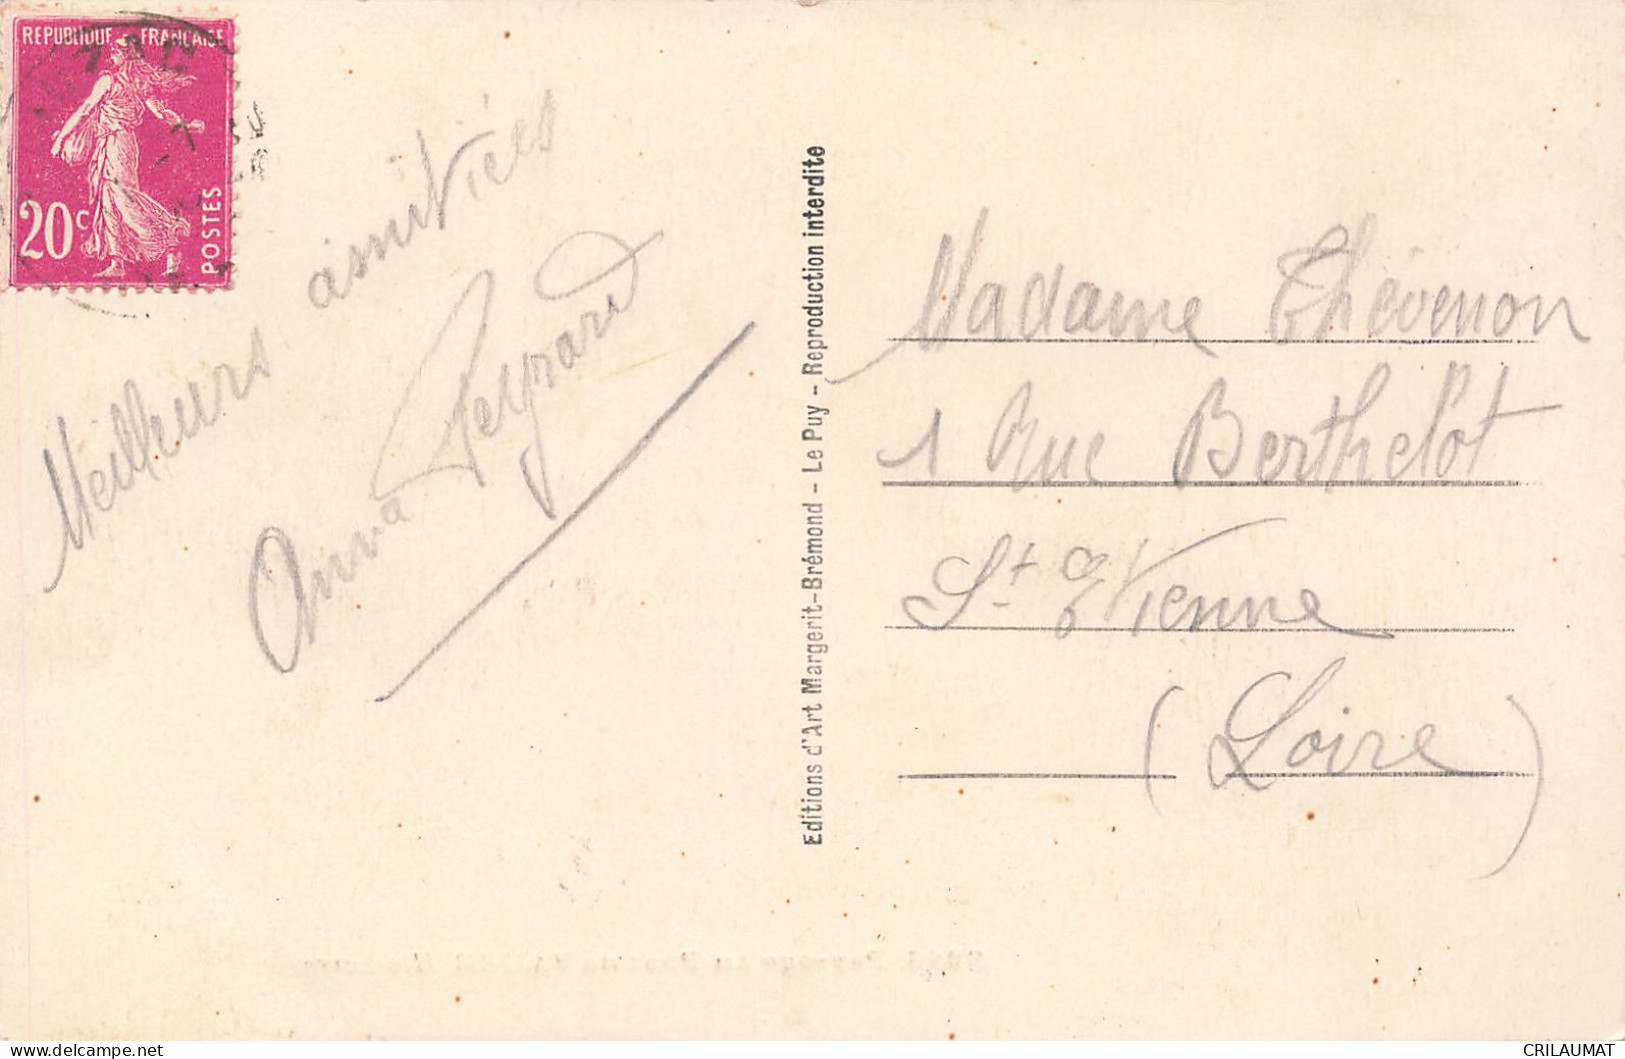 REPUBLIQUE FRANÇAISE
20c
POSTES
Meilleurs amitiés
Anna Peyrard
Editions d'Art Margerit-Brémond - Le Puy - Reproduction interdite
Madame Thévenon
1 Rue Berthelot
St Etienne
(Loire)
CRILAUMAT